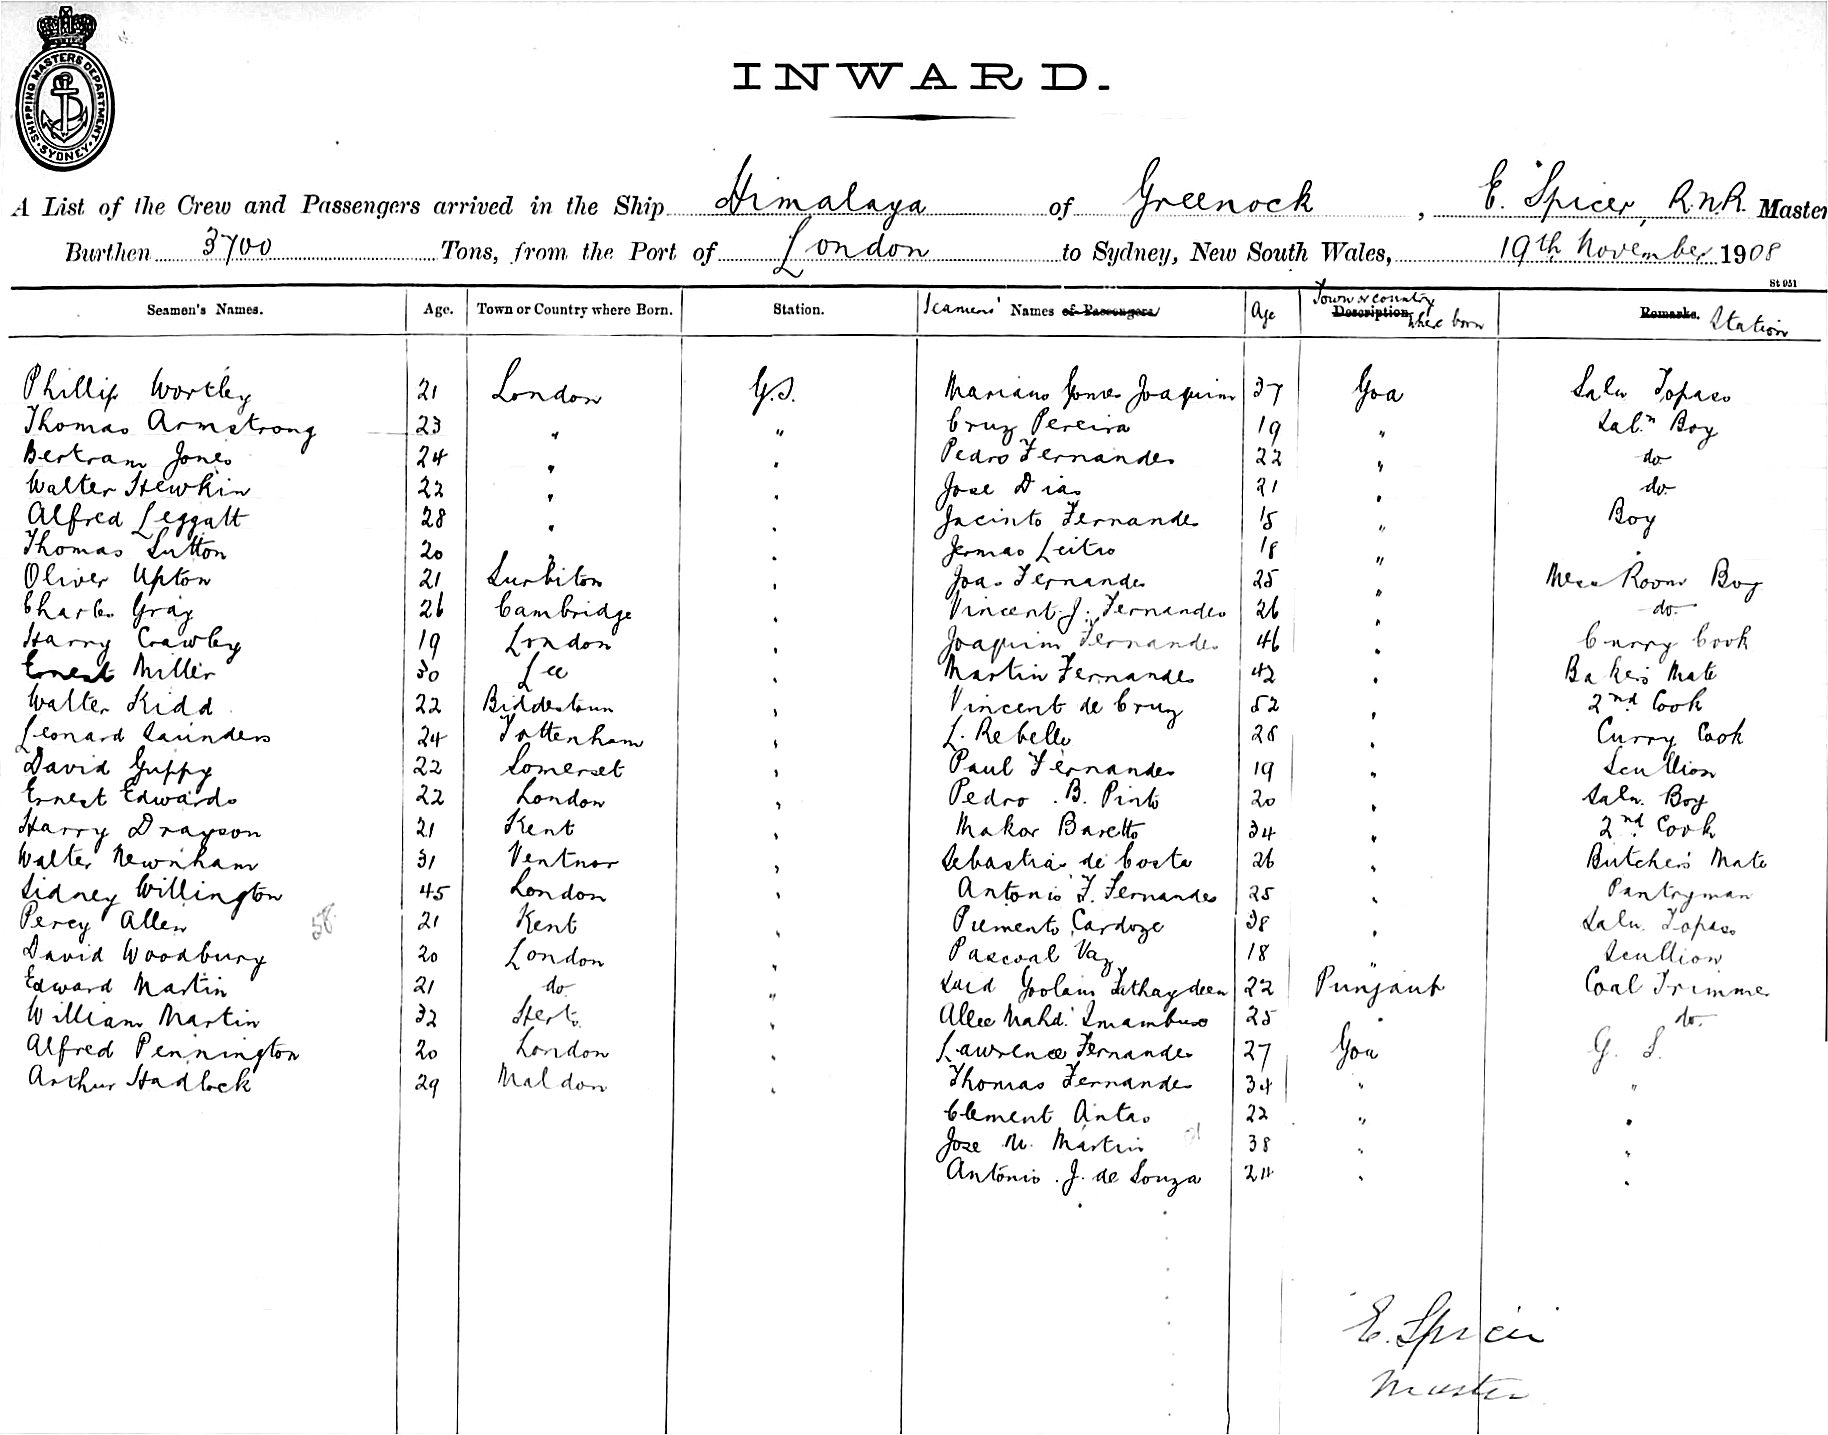 SHIPPING MASTERS DEPARTMENT
SYDNEY
INWARD.
A List of the Crew and Passengers arrived in the Ship Himalaya of Greenock, E. Spicer, R.N.R. Master
Burthen 3700 Tons, from the Port of London to Sydney, New South Wales, 19th November 1908
St 951
Seamen's Names. Age. Town or Country where Born. Station. Seamens' Names of Passengers Age Town or country where born Description Remarks. Station
Phillip Wortley 21 London G.S. Mariano Gomes Joaquim 37 Goa Saln Topass
Thomas Armstrong 23 " " Cruz Pereira 19 " Sal.n Boy
Bertram Jones 24 " " Pedro Fernandes 22 " do
Walter Hewkin 22 " " Jose Dias 21 " do
Alfred Leggatt 28 " " Jacinto Fernandes 15 " Boy
Thomas Sutton 20 " " Leitao 18 " "
Oliver Upton 21 Surbiton " Joas Fernandes 25 " Mess Room Boy
Charles Gray 26 Cambridge " Vincent J. Fernandes 26 " do
Harry Crawley 19 London " Joaquim Fernandes 46 " Curry Cook
Ernest Miller 30 Lee " Martin Fernandes 42 " Bakers Mate
Walter Kidd 22 Biddestown " Vincent de Cruz 52 " 2nd Cook
Leonard Saunders 24 Tottenham " L. Rebello 28 " Curry Cook
David Guppy 22 Somerset " Paul Fernandes 19 " Scullion
Ernest Edwards 22 London " Pedro B. Pinto 20 " Saln. Boy
Harry Drayson 21 Kent " Makor Baretto 34 " 2nd Cook
Walter Newnham 31 Ventnor " Sebastias de Costa 26 " Butchers Mate
Sidney Willington 45 London " Antonio F. Fernandes 25 " Pantryman
Percy Allen 58 21 Kent " Piemento Cardoze 38 " Saln. Topass
David Woodbury 20 London " Pascoal Vaz 18 " Scullion
Edward Martin 21 do. " Said Goolam 22 Punjaub Coal Trimmer
William Martin 32 Herts. " Allee Mahd. Imambux 25 " do.
Alfred Pennington 20 London " Lawrence Fernandes 27 Goa G. S.
Arthur Hadlock 29 Maldon " Thomas Fernandes 34 " "
Clement Antao 22 " "
Jose M. Martin 38 " "
Antonio J. de Souza 24 " "
E. Spicer
Master